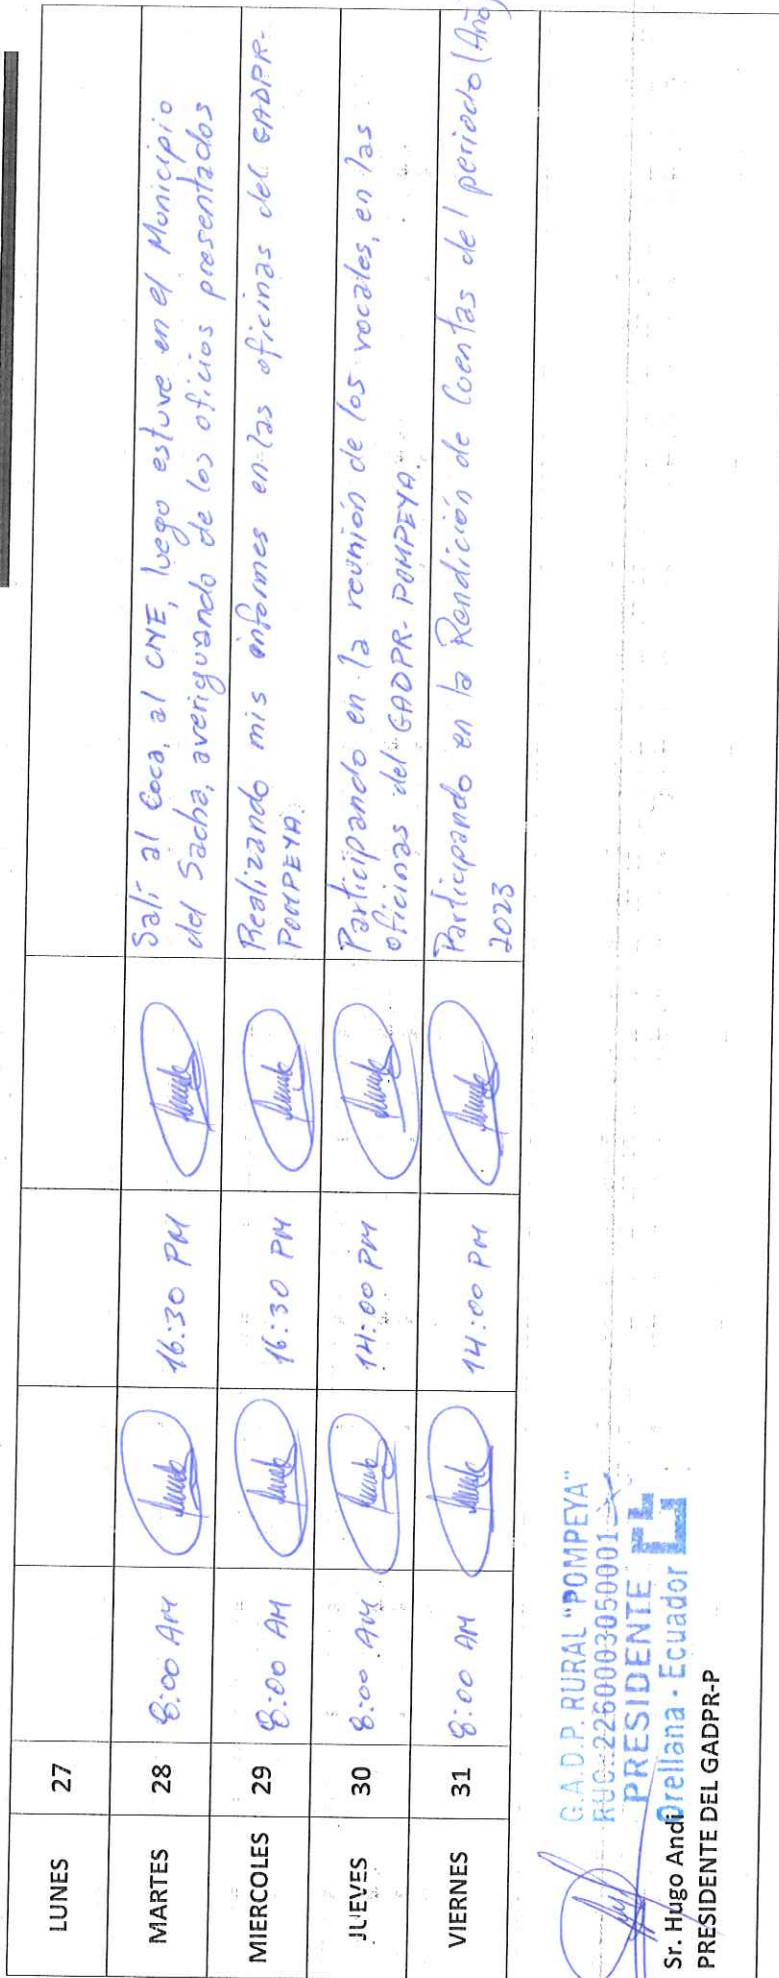 LUNES 27
MARTES 28 8:00 AM 16:30 PM Salí al Coca, al CNE, luego estuve en el Municipio
del Sacha, averiguando de los oficios presentados
MIERCOLES 29 8:00 AM 16:30 PM Realizando mis informes en las oficinas del GADPR-
POMPEYA.
JUEVES 30 8:00 AM 14:00 PM Participando en la reunión de los vocales, en las
oficinas del GADPR-POMPEYA.
VIERNES 31 8:00 AM 14:00 PM Participando en la Rendición de Cuentas del periodo (Año)
2023
G.A.D.P. RURAL "POMPEYA"
RUC: 2260003050001
PRESIDENTE
Orellana - Ecuador
Sr. Hugo Andi
PRESIDENTE DEL GADPR-P